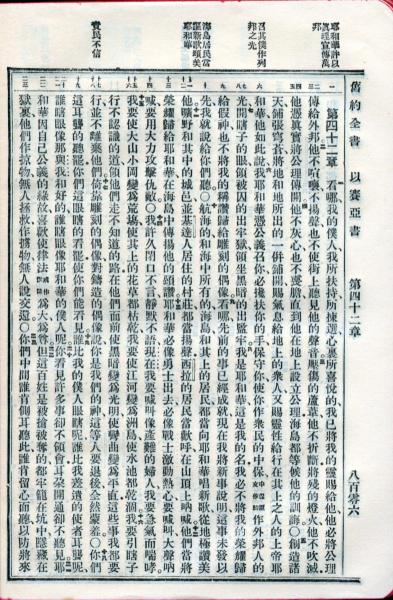 耶和華許以
眞理宣傳萬
邦
召其僕作列
邦之先
海島居民當
謳新歌頌美
耶和華
責民不信
舊約全書 以賽亞書 第四十二章 八百零六
第四十二章 看哪我的僕人我所扶持所揀選心裏所喜悅的我已將我的靈賜給他他必將公理
傳給外邦他不喧嚷不揚聲也不使街上聽見他的聲音壓傷的蘆葦他不折斷將殘的燈火他不吹滅
他憑眞實將公理傳開他不灰心也不喪膽直到他在地上設立公理海島都等候他的訓誨○創造諸
天鋪張穹蒼將地和地所出的一併鋪開賜氣息給地上的衆人又賜靈性給行在其上之人的上帝耶
和華他如此說我耶和華憑公義召你必攙扶你的手保守你使你作衆民的中保中保原文作約作外邦人的
光開瞎子的眼領被囚的出牢獄領坐黑暗的出監牢我是耶和華這是我的名我必不將我的榮耀歸
給假神也不將我的稱讚歸給雕刻的偶像看哪先前的事已經成就現在我將新事說明這事未發以
先我就說給你們聽○航海的和海中所有的海島和其上的居民都當向耶和華唱新歌從地極讚美
他曠野和其中的城邑並基達人居住的村莊都當揚聲西拉的居民當歡呼在山頂上吶喊他們當將
榮耀歸給耶和華在海島中傳揚他的頌讚耶和華必像勇士出去必像戰士激動熱心要喊叫大聲吶
喊要用大力攻擊仇敵○我許久閉口不言靜默不語現在我要喊叫像產難的婦人我要急氣而喘哮
我要使大山小岡變爲荒場使其上的花草都枯乾我要使江河變爲洲島使水池都乾涸我要引瞎子
行不認識的道領他們走不知道的路在他們面前使黑暗變爲光明使彎曲變爲平直這些事我都要
行並不離棄他們倚靠雕刻的偶像對鑄造的偶像說你是我們的神這等人要退後全然蒙羞○你們
這耳聾的聽罷你們這眼瞎的看罷使你們能看見誰比我的僕人眼瞎呢誰比我差遣的使者耳聾呢
誰瞎眼像那與我和好的誰瞎眼像耶和華的僕人呢你看見許多事卻不領會耳朵開通卻不聽見耶
和華因自己公義的緣故喜歡使律法或作訓誨爲大爲尊但這百姓是被搶被奪的都牢籠在坑中隱藏在
獄裏他們作掠物無人拯救作擄物無人說交還○你們中間誰肯側耳聽此誰肯留心而聽以防將來